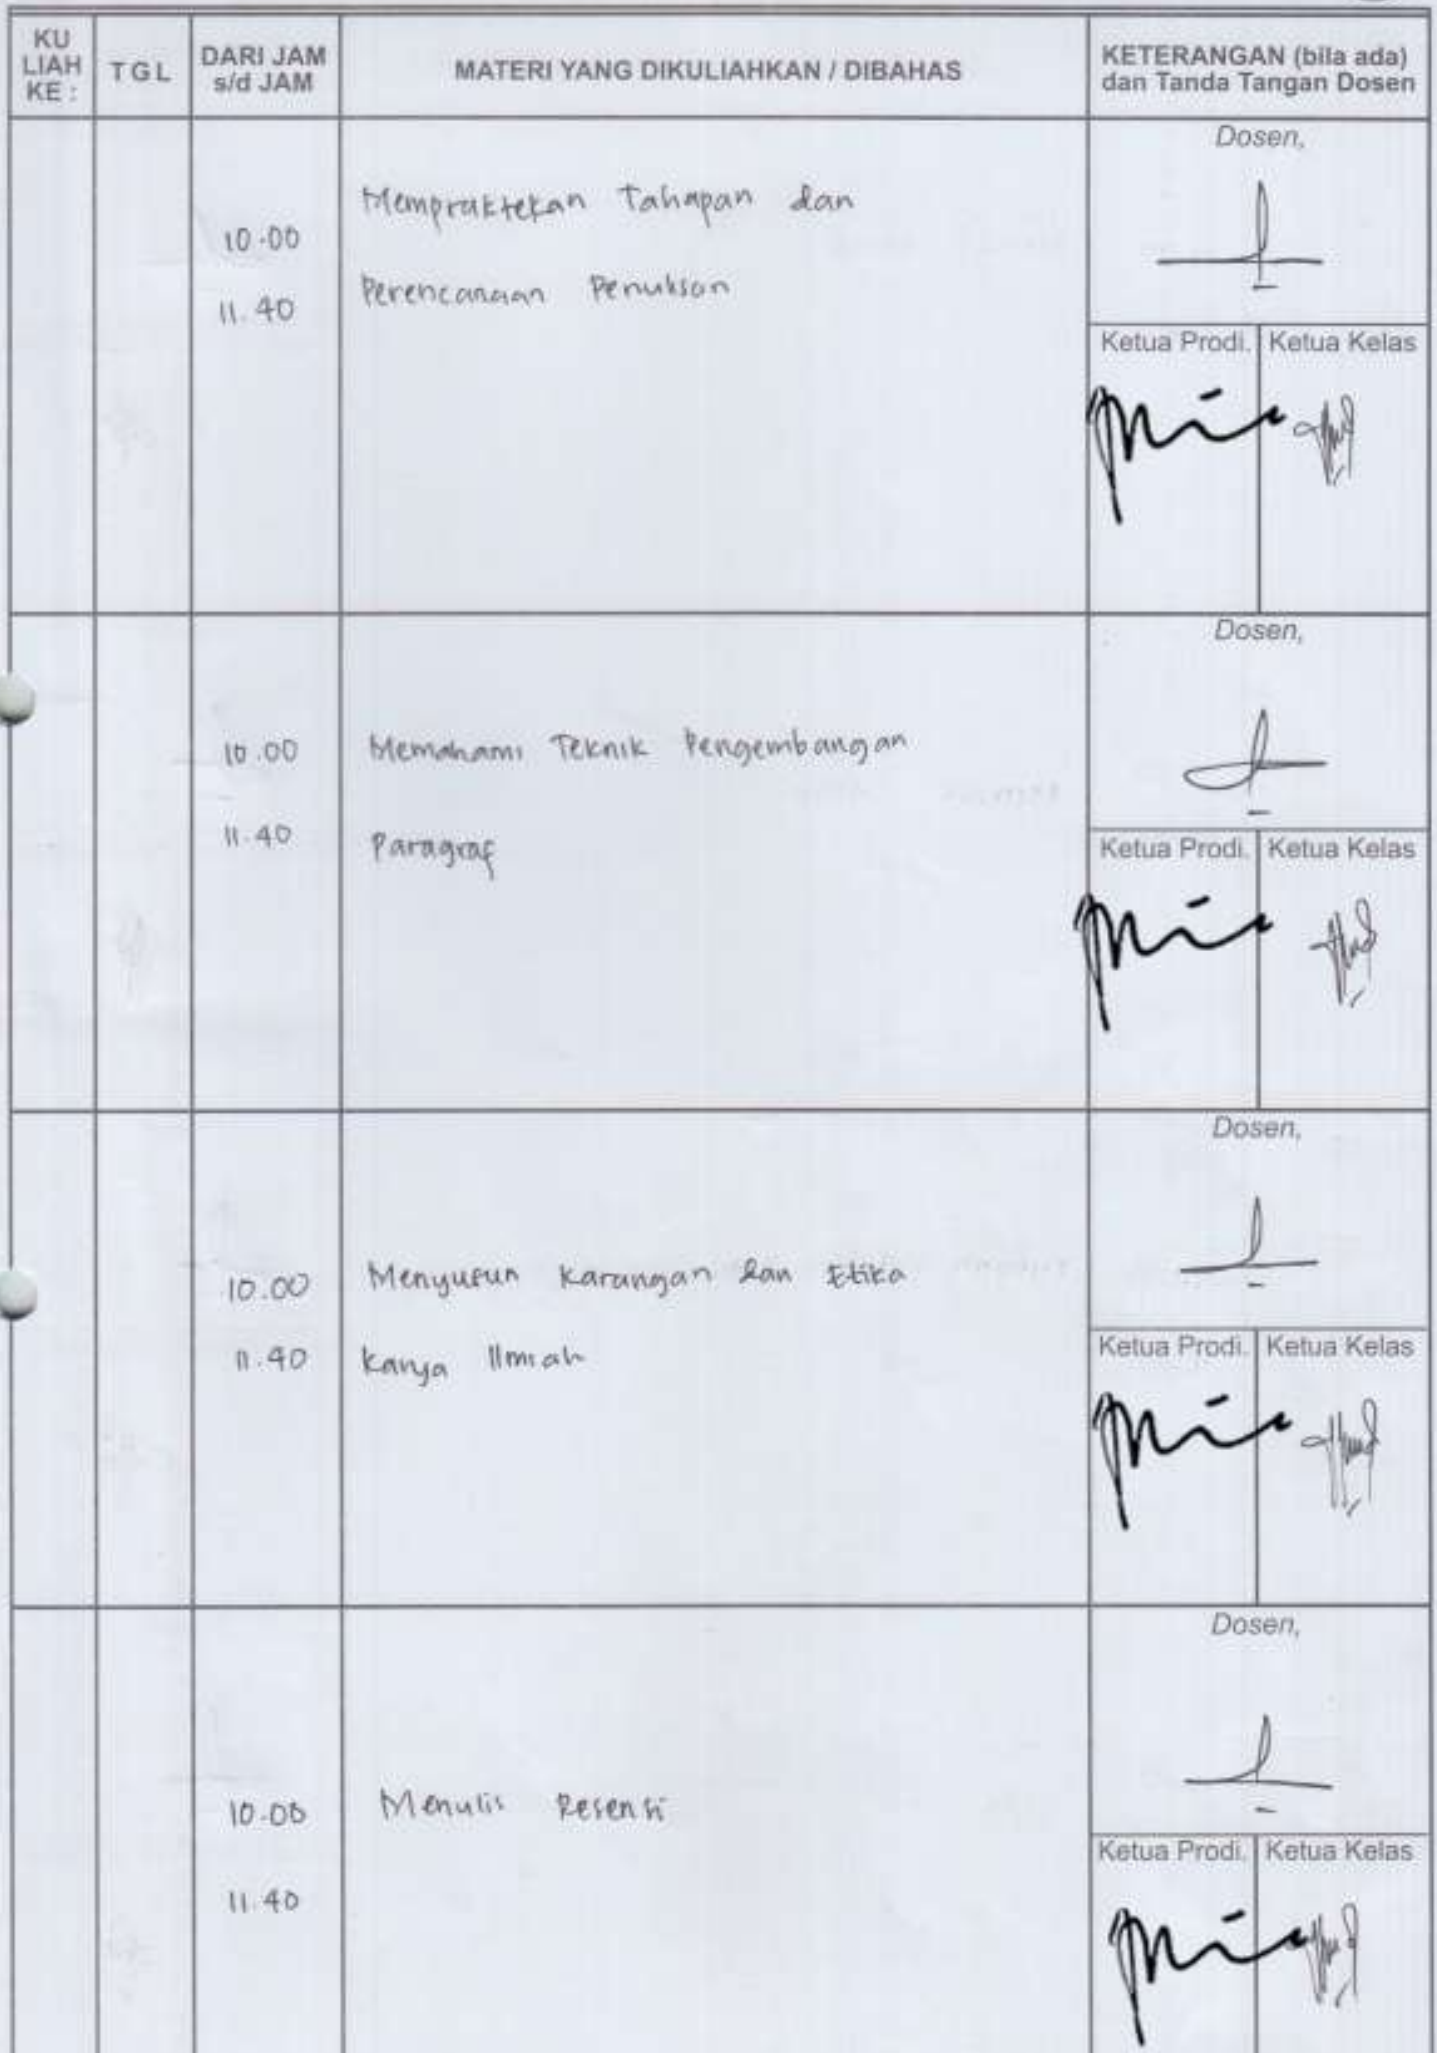 KU LIAH KE : TGL DARI JAM s/d JAM MATERI YANG DIKULIAHKAN / DIBAHAS KETERANGAN (bila ada) dan Tanda Tangan Dosen
Dosen,
Mempraktekan Tahapan dan
10.00
Perencanaan Penulisan
11.40
Ketua Prodi. Ketua Kelas
Dosen,
10.00 Memahami Teknik Pengembangan
11.40 Paragraf
Ketua Prodi. Ketua Kelas
Dosen,
10.00 Menyusun Karangan dan Etika
11.40 Karya Ilmiah
Ketua Prodi. Ketua Kelas
Dosen,
10.00 Menulis Resensi
Ketua Prodi. Ketua Kelas
11.40